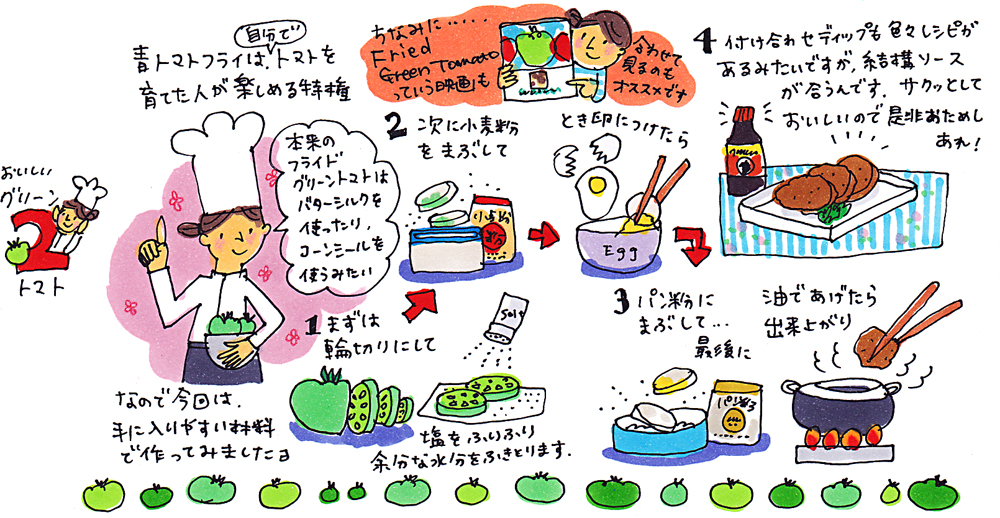 自分で
青トマトフライは、トマトを
育てた人が楽しめる特権
おいしい
グリーン
2
トマト
本来の
フライド
グリーントマトは
バターミルクを
使ったり、
コーンミールを
使うみたい
なので今回は、
手に入りやすい材料
で作ってみました
ちなみに・・・・・
Fried
Green Tomato
っていう映画も
合わせて
見るのも
オススメです
1 まずは
輪切りにして
Salt
塩をふりふり
余分な水分をふきとります.
2 次に小麦粉
をまぶして
とき卵につけたら
Egg
3 パン粉に
まぶして…
パン粉
最後に
油であげたら
出来上がり
4 付け合わせディップも色々レシピが
あるみたいですが、結構ソース
が合うんです. サクッとして
おいしいので是非おためし
あれ!